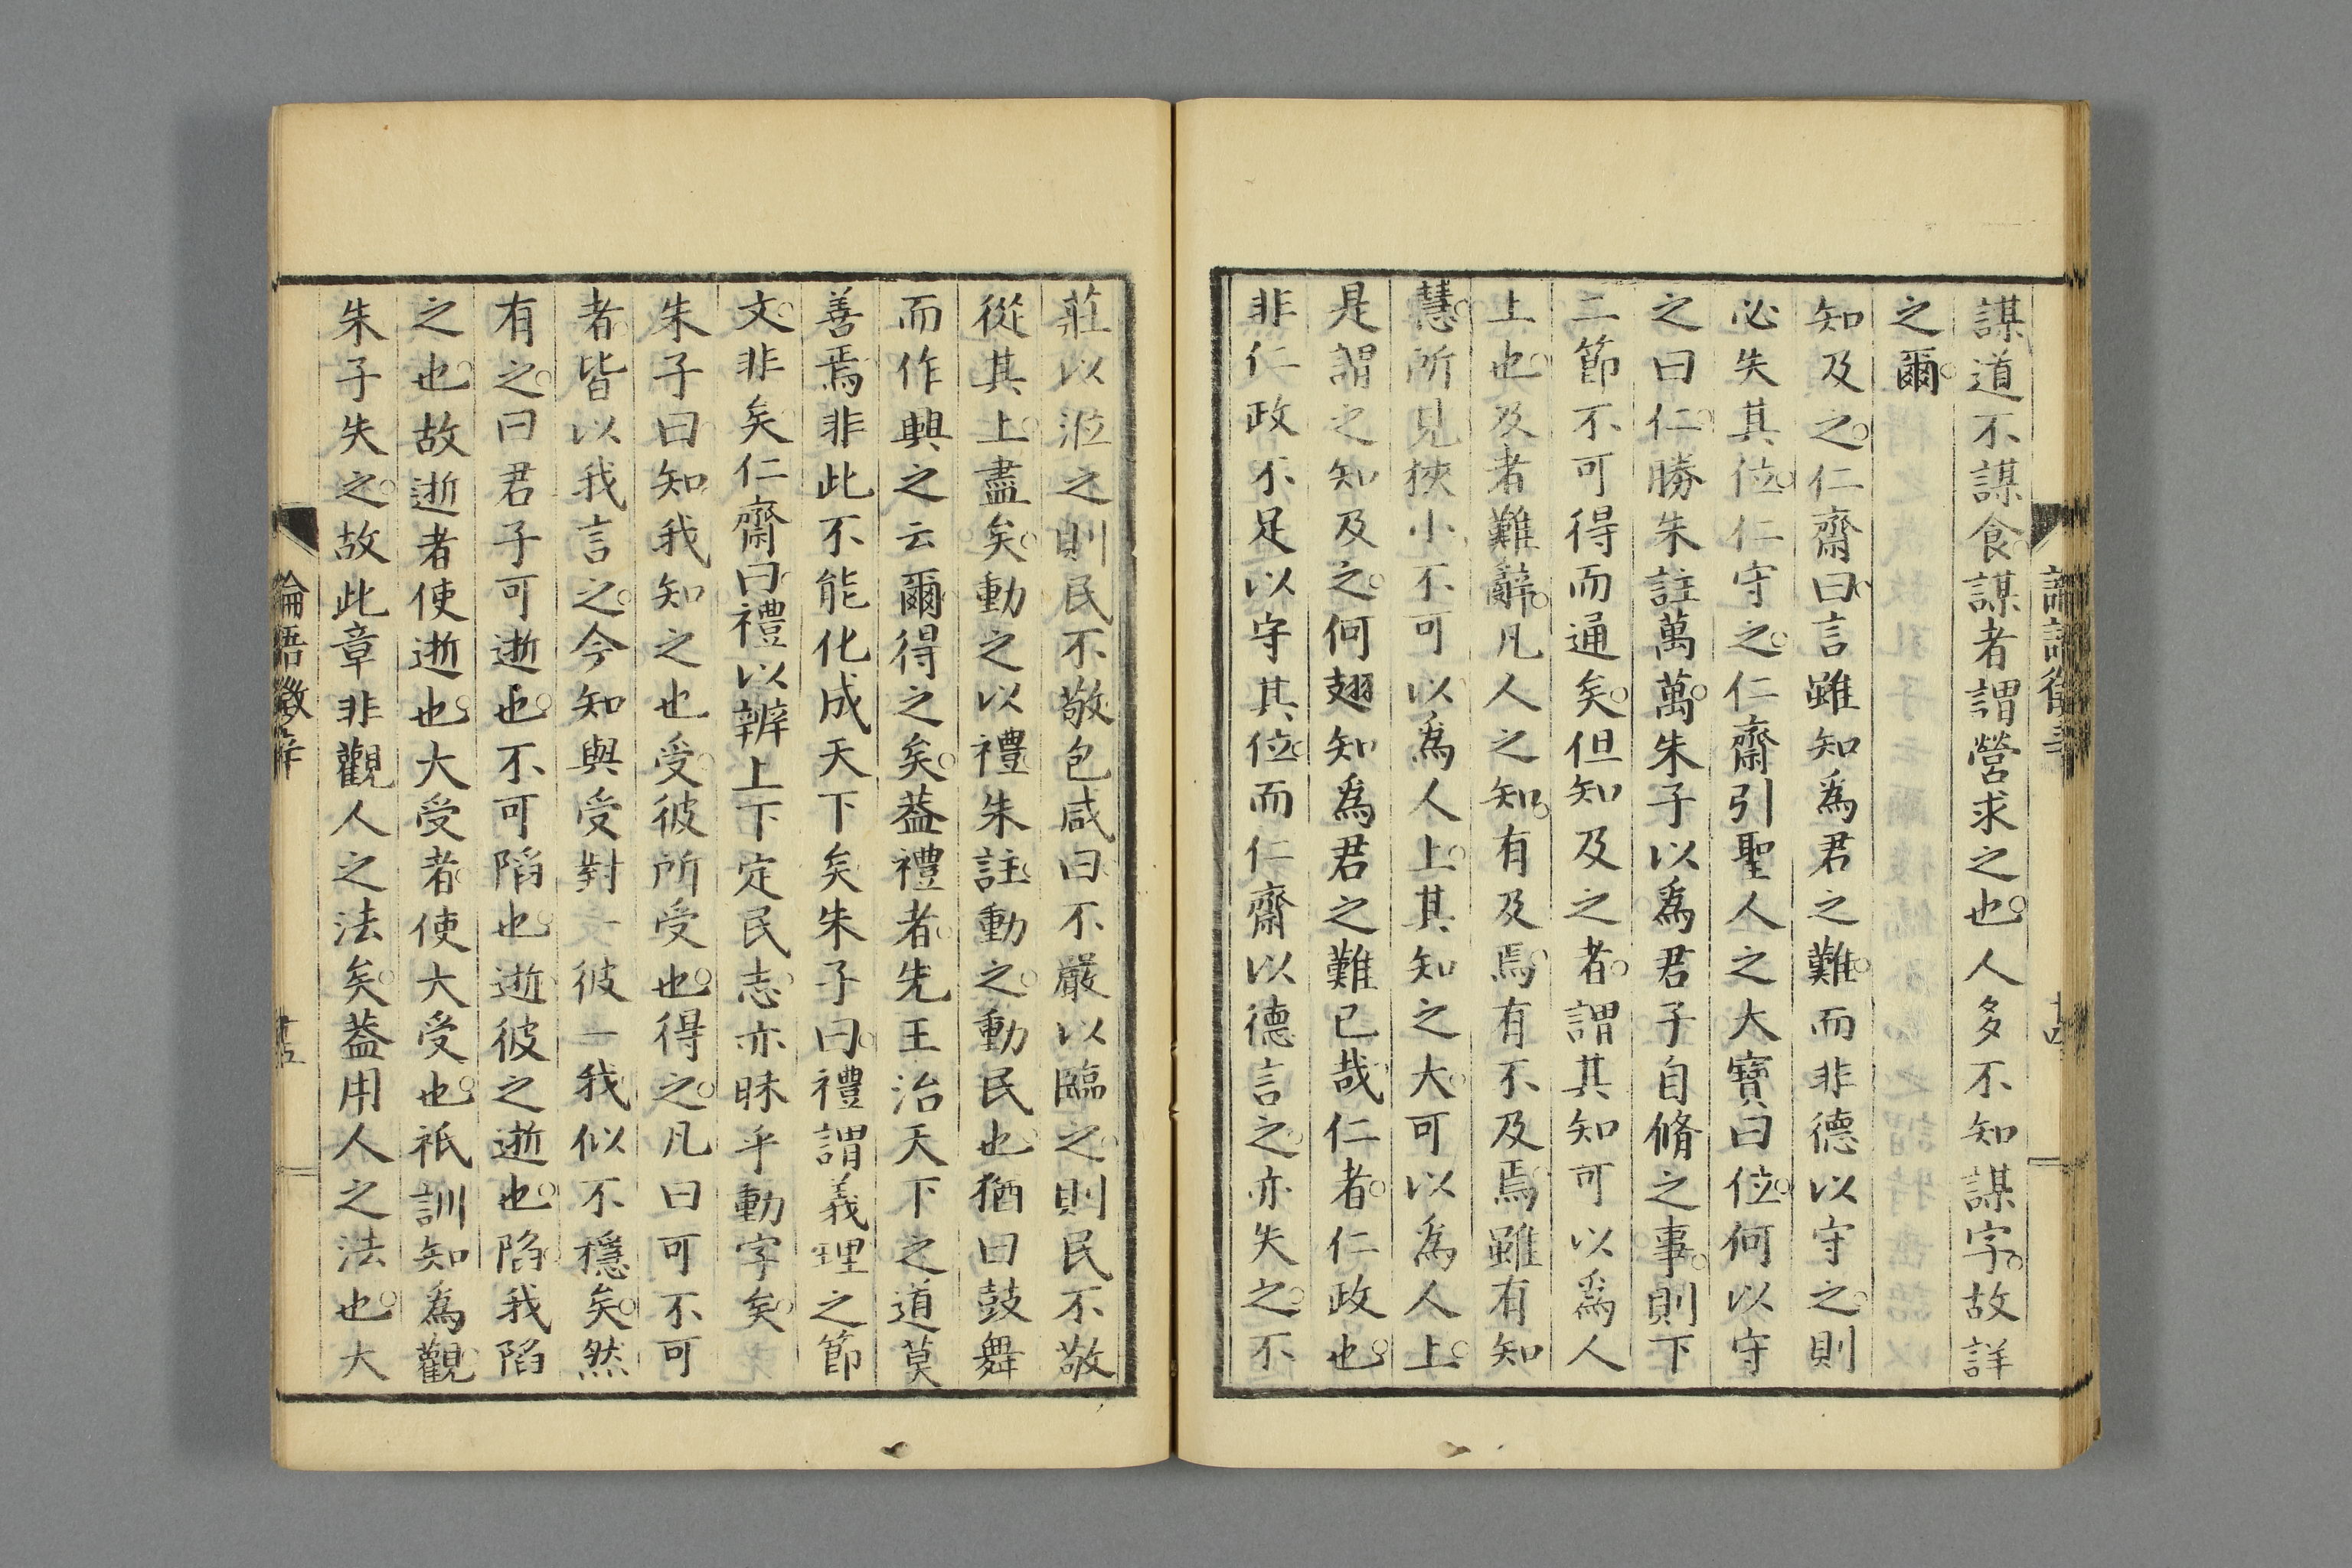 謀道不謀食謀者謂營求之也人多不知謀字故詳
之爾
知及之仁齋曰言雖知爲君之難而非德以守之則
必失其位仁守之仁齋引聖人之大寶曰位何以守
之曰仁勝朱註萬萬朱子以爲君子自脩之事則下
二節不可得而通矣但知及之者謂其知可以爲人
上也及者難辭凡人之知有及焉有不及焉雖有知
慧所見狹小不可以爲人上其知之大可以爲人上
是謂之知及之何翅知爲君之難已哉仁者仁政也
非仁政不足以守其位而仁齋以德言之亦失之不
莊以涖之則民不敬包咸曰不嚴以臨之則民不敬
從其上盡矣動之以禮朱註動之動民也猶曰鼓舞
而作興之云爾得之矣葢禮者先王治天下之道莫
善焉非此不能化成天下矣朱子曰禮謂義理之節
文非矣仁齋曰禮以辨上下定民志亦昧乎動字矣
朱子曰知我知之也受彼所受也得之凡曰可不可
者皆以我言之今知與受對一彼一我似不穩矣然
有之曰君子可逝也不可陷也逝彼之逝也陷我陷
之也故逝者使逝也大受者使大受也祇訓知爲觀
朱子失之故此章非觀人之法矣葢用人之法也大
論語徵